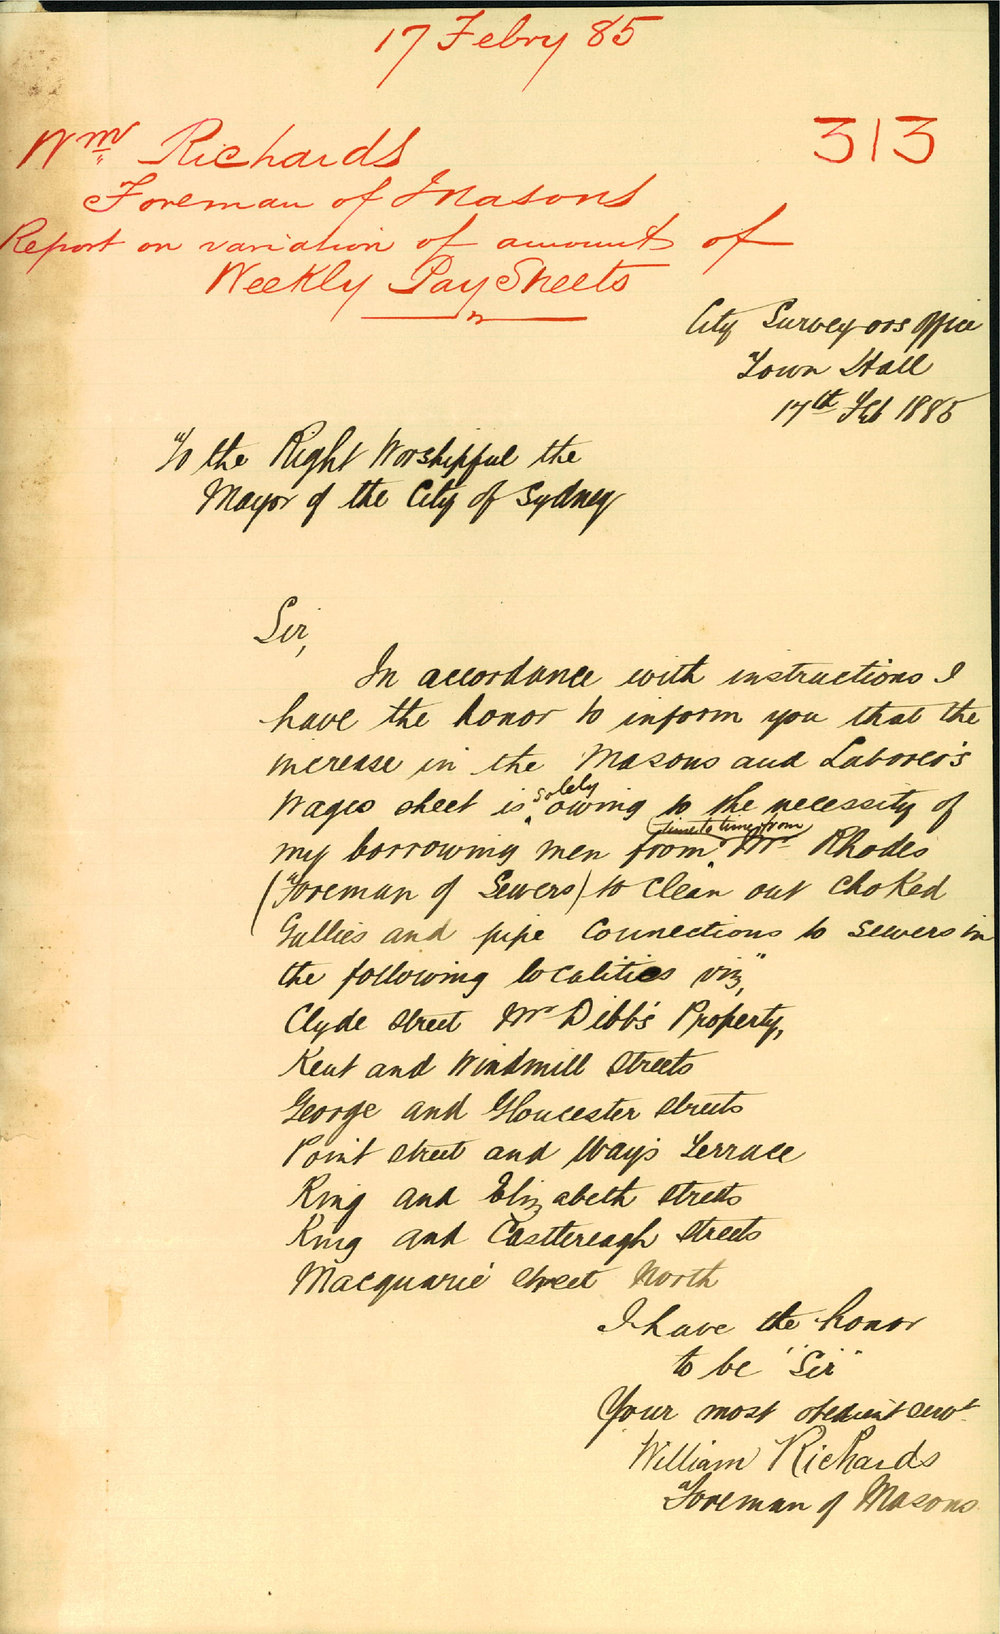 17 Febry 85
Wm Richards 313
Foreman of Masons
Report on variation of amount of
Weekly Pay Sheets
City Surveyors Office
Town Hall
17th Feb 1885
To the Right Worshipful the
Mayor of the City of Sydney
Sir,
In accordance with instructions I
have the honor to inform you that the
increase in the Masons and Laborer's
Wages sheet is solely owing to the necessity of
my borrowing men from time to time from Mr Rhodes
(Foreman of Sewers) to clean out choked
Gullies and pipe Connections to sewers in
the following localities viz,"
Clyde Street Mr Dibb's Property,
Kent and Windmill Streets
George and Gloucester Streets
Point Street and Ways Terrace
King and Elizabeth Streets
King and Castlereagh Streets
Macquarie Street North
I have the honor
to be "Sir"
Your most obedient servt
William Richards
Foreman of Masons